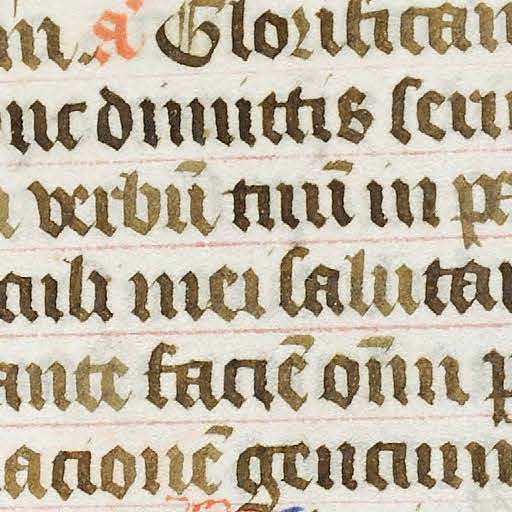 in. a Glorifican
unc dimittis seru
verbū tuū in pa
culi mei saluta
ante faciē oīm p
acionē gencium